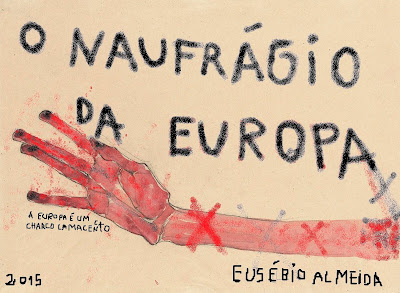 O NAUFRÁGIO
DA EUROPA
A EUROPA É UM
CHARCO LAMACENTO
2015
EUSÉBIO ALMEIDA